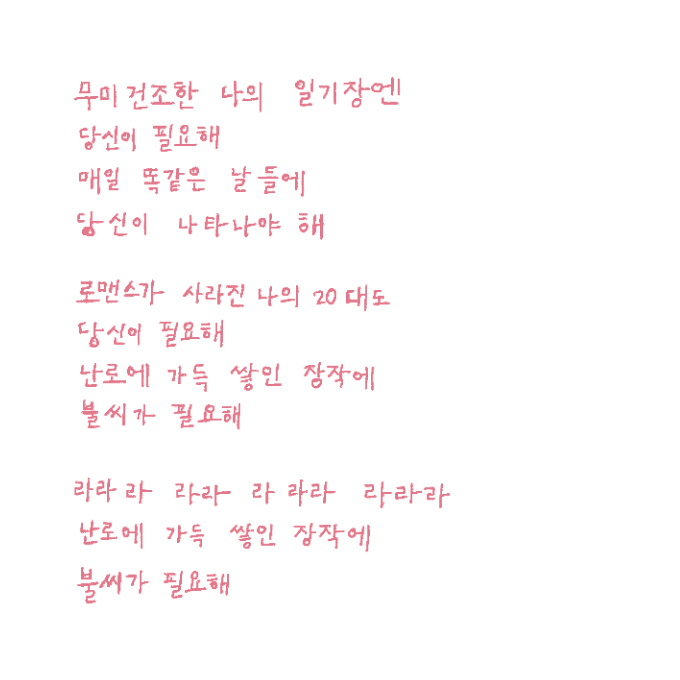 무미건조한 나의 일기장엔
당신이 필요해
매일 똑같은 날들에
당신이 나타나야 해
로맨스가 사라진 나의 20대도
당신이 필요해
난로에 가득 쌓인 장작에
불씨가 필요해
라라라 라라 라 라라 라라라
난로에 가득 쌓인 장작에
불씨가 필요해